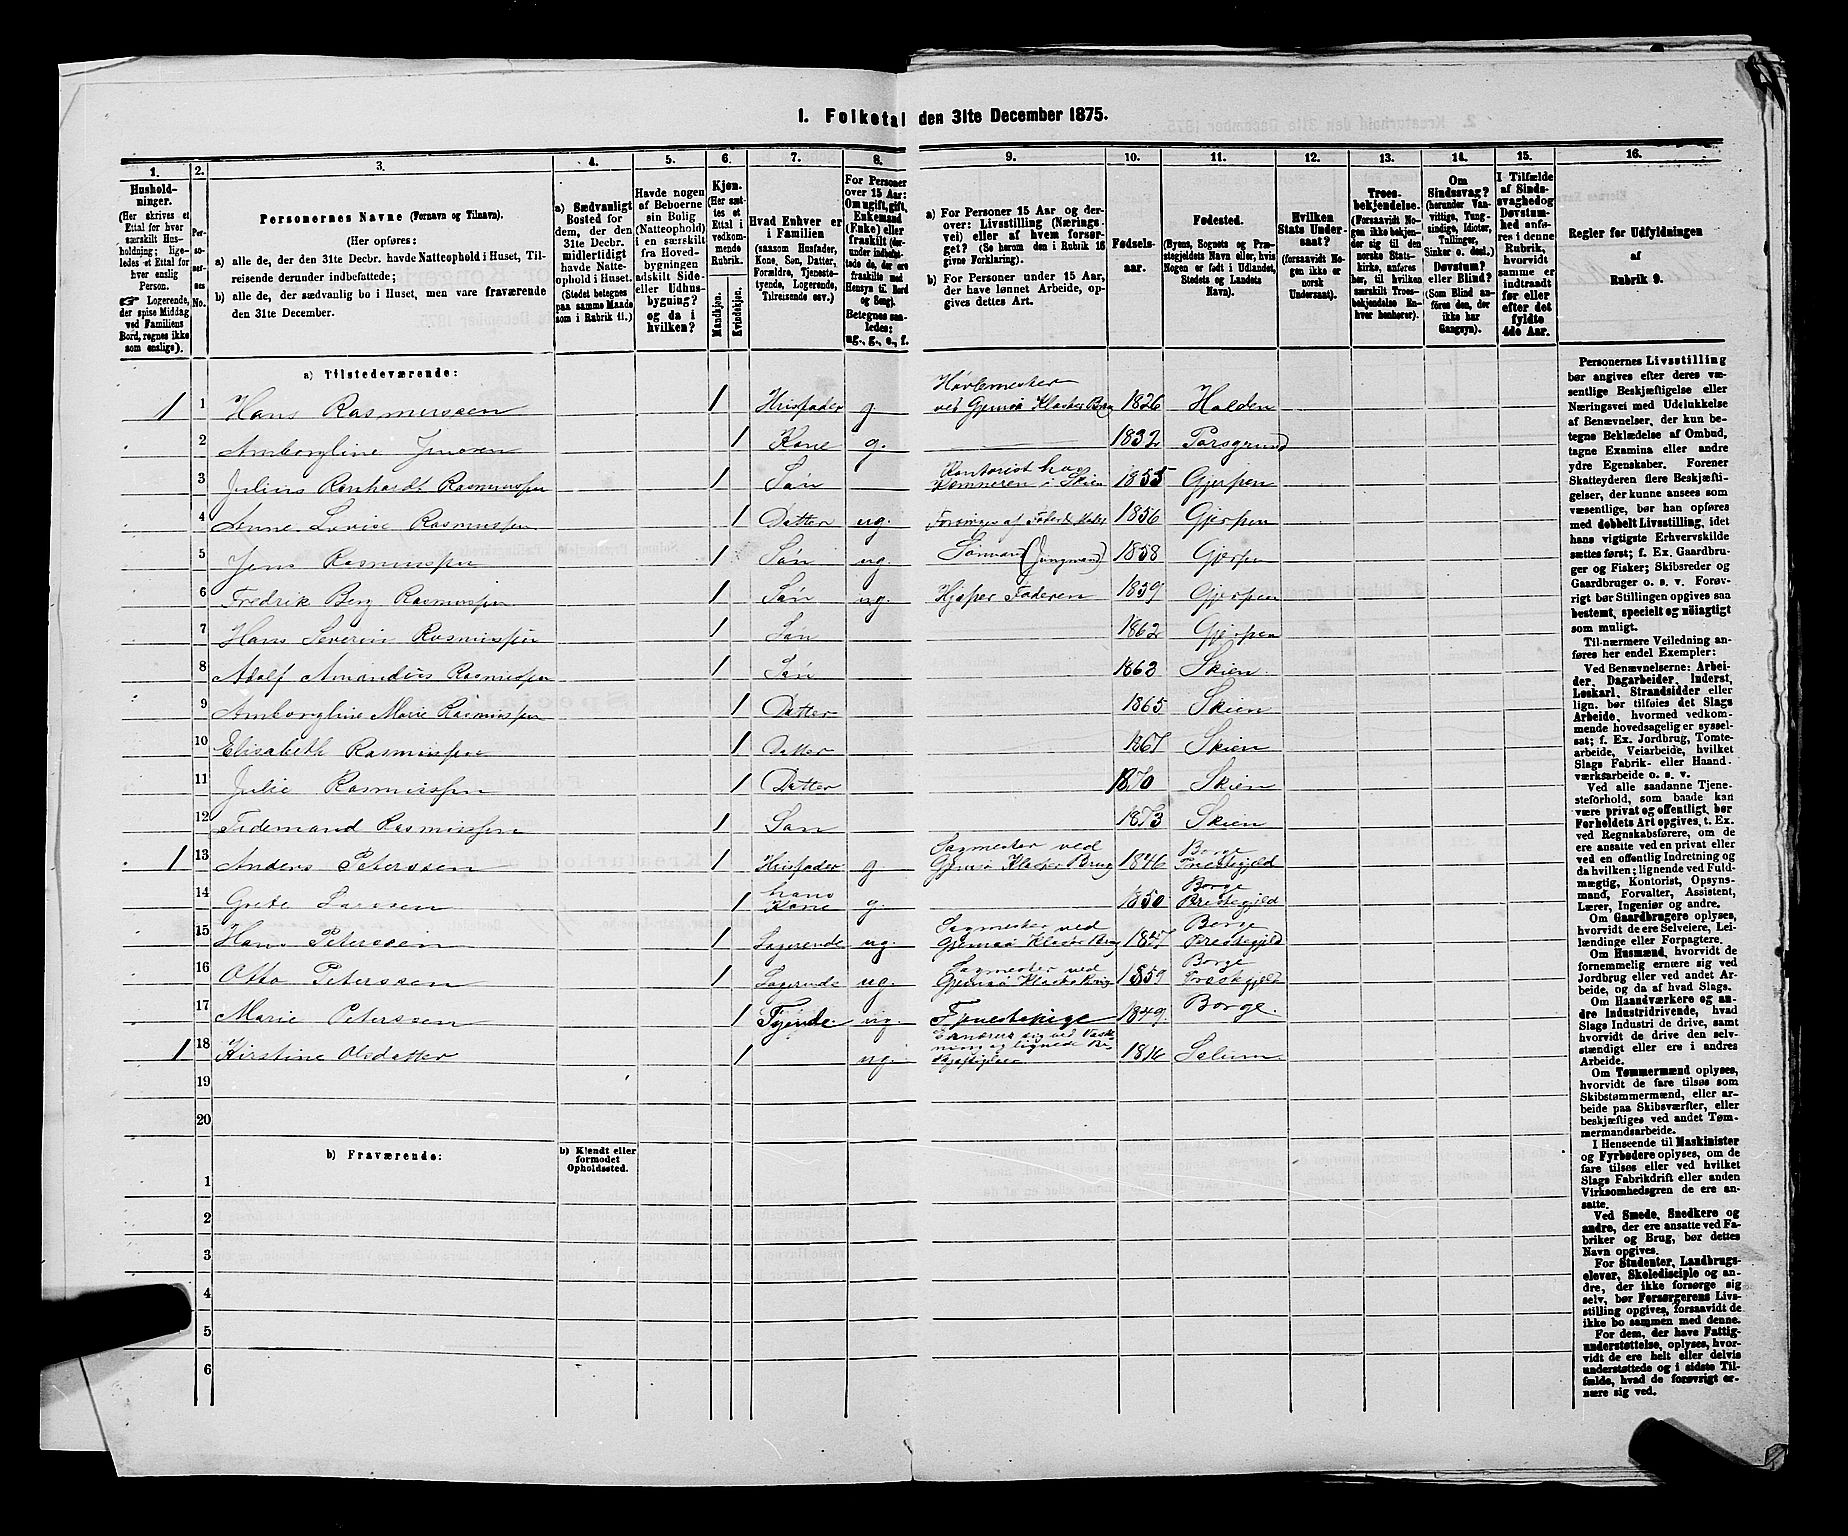 1. Folketal den 31te December 1875.
1. 2. 3. 4. 5. 6. 7. 8. 9. 10. 11. 12. 13. 14. 15. 16.
Hushold-
ninger.
(Her skrives et
Ettal for hver
særskilt Hus-
holdning; lige-
ledes et Ettal for
hver enslig
Person.
Logerende,
der spise Middag
ved Familiens
Bord, regnes ikke
som enslige).
Per-
so-
ner-
nes
No.
Personernes Navne (Fornavn og Tilnavn).
(Her opføres:
a) alle de, der den 31te Decbr. havde Natteophold i Huset, Til-
reisende derunder indbefattede;
b) alle de, der sædvanlig bo i Huset, men vare fraværende
den 31te December.
a) Sædvanligt
Bosted for
dem, der den
31te Decbr.
midlertidigt
havde Natte-
ophold i Huset.
(Stedet betegnes
paa samme Maade
som i Rubrik 11.)
Havde nogen
af Beboerne
sin Bolig
(Natteophold)
i en særskilt
fra Hoved-
bygningen
adskilt Side-
eller Udhus-
bygning?
og da i
hvilken?
Kjøn.
(Her sæt-
tes et
Ettal i
vedkom-
mende
Rubrik.
Mandkjøn.
Kvindekjøn.
Hvad Enhver er
i Familien
(saasom Husfader,
Kone, Søn, Datter,
Forældre, Tjeneste-
tyende, Logerende,
Tilreisende osv.)
For Personer
over 15 Aar:
Om ugift, gift,
Enkemand
(Enke) eller
fraskilt (der-
under indbefat-
tede de, der ere
fraskilte med
Hensyn til Bord
og Seng).
Betegnes saa-
ledes:
ug., g., e., f.
a) For Personer 15 Aar og der-
over: Livsstilling (Nærings-
vei) eller af hvem forsør-
get? (Se herom den i Rubrik 16
givne Forklaring).
b) For Personer under 15 Aar,
der have lønnet Arbeide, op-
gives dettes Art.
Fødsels-
aar.
Fødested.
(Byens, Sognets og Præ-
stegjeldets Navn eller, hvis
Nogen er født i Udlandet,
Stedets og Landets
Navn).
Hvilken
Stats Under-
saat?
(forsaavidt No-
gen ikke er
norsk
Undersaat).
Troes-
bekjendelse.
(Forsaavidt No-
gen ikke bekjen-
der sig til den
norske Stats-
kirke, anføres
her, til hvilken
særskilt Troes-
bekjendelse En-
hver henhører).
Om
Sindssvag?
(herunder Van-
vittige, Tung-
sindige, Idioter,
Tullinger,
Sinker o. desl.)
Døvstum?
eller Blind?
(Som Blind an-
føres den, der
ikke har
Gangsyn).
I Tilfælde
af Sinds-
svaghed og
Døvstum-
hed anfø-
res i denne
Rubrik,
hvorvidt
samme er
indtraadt
før eller
efter det
fyldte
4de Aar.
Regler for Udfyldningen
af
Rubrik 9.
a) Tilstedeværende:
1 1 Hans Rasmussen 1 Husfader g. Høvlemester ved Gjemsø Kloster Brug 1826 Halden
2 Amborgline Jensen 1 Kone g. 1832 Porsgrund
3 Julius Renhardt Rasmussen 1 Søn Kontorist hos Kemneren i Skien 1855 Gjerpen
4 Anne Lovise Rasmussen 1 Datter ug. Forsørges af Fader 1856 Gjerpen
5 Jens Rasmussen 1 Søn ug. Sømand (Jungmand) 1858 Gjerpen
6 Fredrik Berg Rasmussen 1 Søn ug. Hjælper Faderen 1859 Gjerpen
7 Hans Severin Rasmussen 1 Søn 1862 Gjerpen
8 Adolf Amandus Rasmussen 1 Søn 1863 Skien
9 Amborgline Marie Rasmussen 1 Datter 1865 Skien
10 Elisabeth Rasmussen 1 Datter 1867 Skien
11 Julie Rasmussen 1 Datter 1870 Skien
12 Tidemand Rasmussen 1 Søn 1873 Skien
1 13 Anders Peterssen 1 Husfader g. Sagmester ved Gjemsø Kloster Brug 1846 Borge Prestegjeld
14 Grete Larssen 1 hans Kone g. 1850 Borge Prestegjeld
15 Hans Peterssen 1 Logerende ug. Sagmester ved Gjemsø Kloster Brug 1827 Borge Prestegjeld
16 Otto Peterssen 1 Logerende ug. Sagmester ved Gjemsø Kloster Brug 1859 Borge Prestegjeld
17 Marie Peterssen 1 Tyende ug. Tjenestepige 1849 Borge
1 18 Kirstine Olsdatter 1 ug. Ernærer sig ved Vaskning og lignede Beskjæftigelser 1816 Solum
19
20
b) Fraværende:
b) Kjendt eller
formodet
Opholdssted.
1
2
3
4
5
6
Personernes Livsstilling
bør angives efter deres væ-
sentlige Beskjæftigelse eller
Næringsvei med Udelukkelse
af Benævnelser, der kun be-
tegne Beklædelse af Ombud,
tagne Examina eller andre
ydre Egenskaber. Forener
Skatteyderen flere Beskjæfti-
gelser, der kunne ansees som
væsentlige, bør han opføres
med dobbelt Livsstilling, idet
hans vigtigste Erhvervskilde
sættes først; f. Ex. Gaardbru-
ger og Fisker; Skibsreder og
Gaardbruger o. s. v. Forøv-
rigt bør Stillingen opgives saa
bestemt, specielt og nøiagtigt
som muligt.
Til nærmere Veiledning an-
føres her endel Exempler:
Ved Benævnelserne: Arbei-
der, Dagarbeider, Inderst,
Løskarl, Strandsidder eller
lign. bør tilføies det Slags
Arbeide, hvormed vedkom-
mende hovedsagelig er syssel-
sat; f. Ex. Jordbrug, Tomte-
arbeide, Veiarbeide, hvilket
Slags Fabrik- eller Haand-
værksarbeide o. s. v.
Ved alle saadanne Tjene-
steforhold, som baade kan
være privat og offentligt, bør
Forholdets Art opgives, t. Ex.
ved Regnskabsførere, om de
ere ansatte ved en privat eller
ved en offentlig Indretning og
da hvilken; lignende ved Fuld-
mægtig, Kontorist, Opsyns-
mand, Forvalter, Assistent,
Lærer, Ingeniør og andre.
Om Gaardbrugere oplyses,
hvorvidt de ere Selveiere, Lei-
lændinge eller Forpagtere.
Om Husmænd, hvorvidt de
fornemmelig ernære sig ved
Jordbrug eller ved andet Ar-
beide, og da af hvad Slags.
Om Haandværkere og an-
dre Industridrivende, hvad
Slags Industri de drive, samt
hvorvidt de drive den selv-
stændigt eller ere i andres
Arbeide.
Om Tømmermænd oplyses,
hvorvidt de fare tilsøs som
Skibstømmermænd, eller ar-
beide paa Skibsværfter, eller
beskjæftiges ved andet Tøm-
mermandsarbeide.
I Henseende til Maskinister
og Fyrbødere oplyses, om de
fare tilsøs eller ved hvilket
Slags Fabrikdrift eller anden
Virksomhedsgren de ere an-
satte.
Ved Smede, Snedkere og
andre, der ere ansatte ved Fa-
briker og Brug, bør dettes
Navn opgives.
For Studenter, Landbrugs-
elever, Skoledisciple og an-
dre, der ikke forsørge sig
selv, bør Forsørgerens Livs-
stilling opgives, forsaavidt de
ikke bo sammen med denne.
For dem, der have Fattig-
understøttelse, oplyses, hvor-
vidt de ere helt eller delvis
understøttede og i sidste Til-
fælde, hvad de forøvrigt er-
nære sig ved.